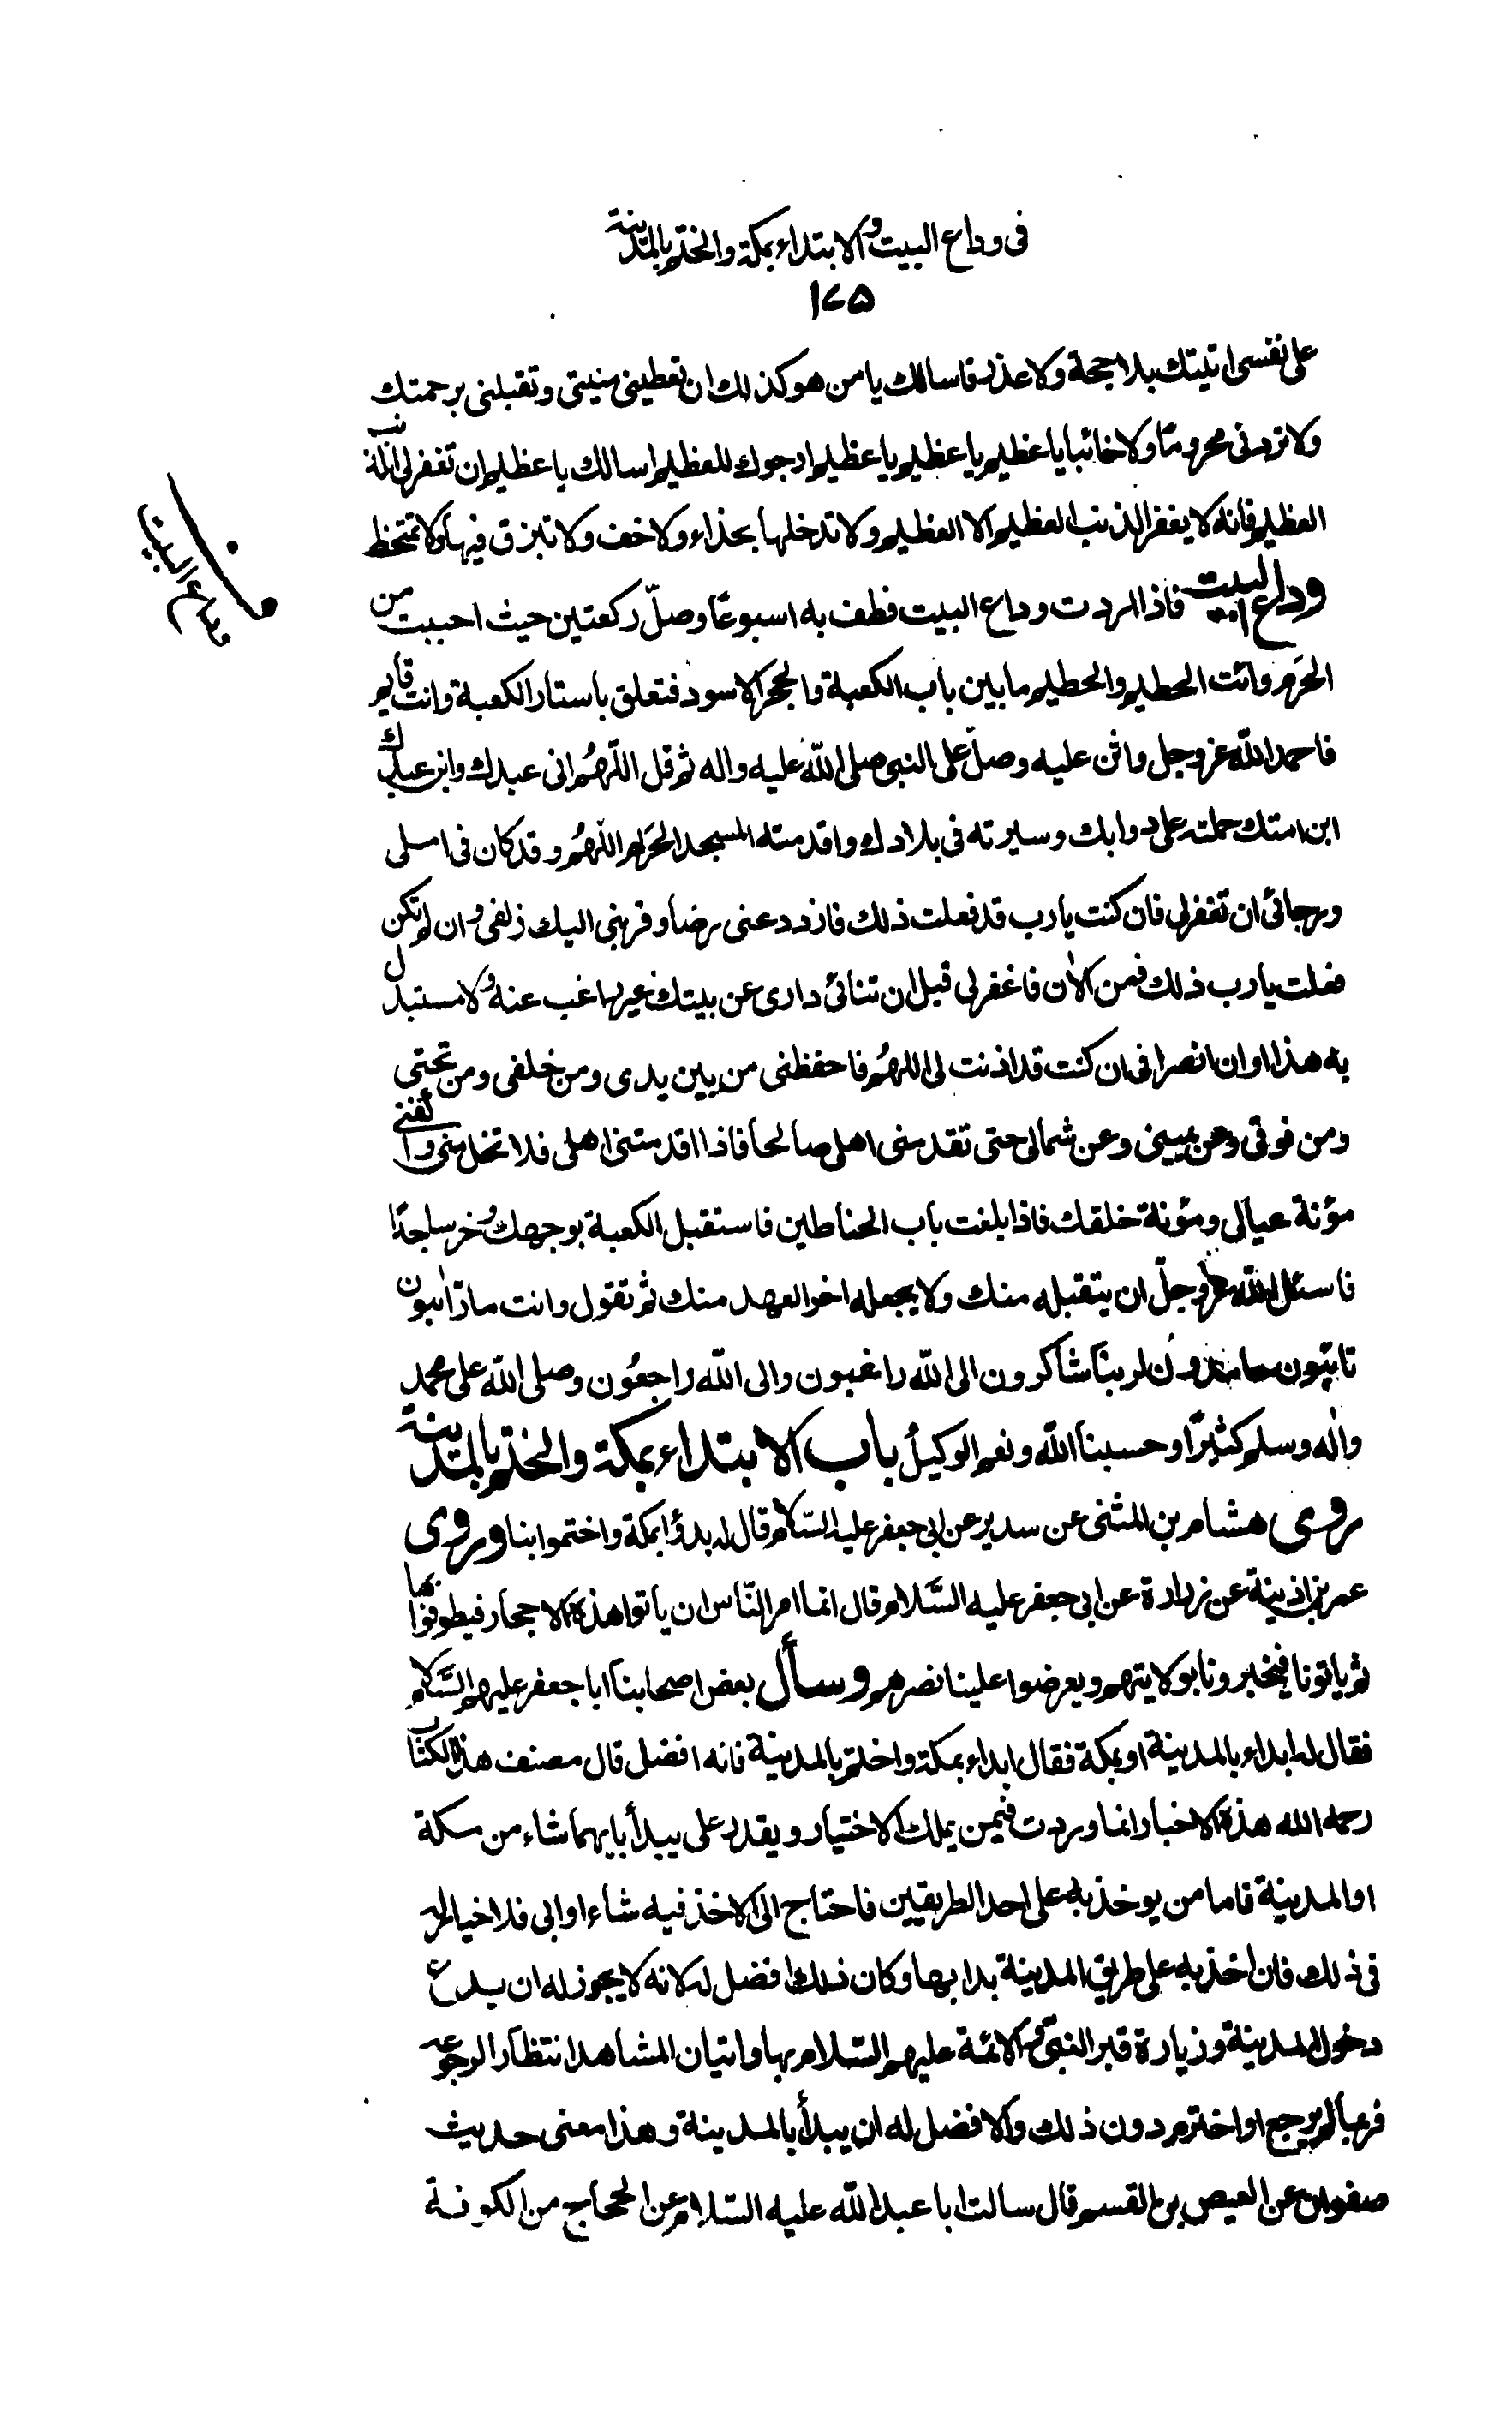 فى وداع البيت والابتداء بمكة والختم بالمدينة
١٧٥
على نفسى اتيتك بلا حجة ولا عذر فاسالك يا من هو كذلك ان تعطينى منيتى وتقبلنى برحمتك
ولا تردنى محروما ولا خائبا يا عظيم يا عظيم يا عظيم ارجوك للعظيم اسالك يا عظيم ان تغفر لى الذنب
العظيم فانه لا يغفر الذنب العظيم الا العظيم ولا تدخلها بحذاء ولا خف ولا تبزق فيها ولا تمتخط
وداع البيت فاذا اردت وداع البيت فطف به اسبوعًا وصلّ ركعتين حيث احببت من
الحَرم وائت الحطيم والحطيم ما بين باب الكعبة والحجر الاسود فتعلق باستار الكعبة وانت قايم
فاحمد الله عز وجل واثن عليه وصلّ على النبى صلى الله عليه واله ثم قل اللّهمُ انى عبدك وابن عبدك
ابن امتك حملته على دوابك وسيرته فى بلادك واقدمته المسجد الحَرام اللّهمُ وقد كان فى املى
ورجائى ان تغفر لى فان كنت يا رب قد فعلت ذلك فازدد عنى رضا وقربنى اليك زلفى وان لم تكن
فعلت يا رب ذلك فمن الاٰن فاغفر لى قبل ان تنائ دارى عن بيتك غير راغب عنه ولا مستبدل
به هذا اوان انصرافى ان كنت قد اذنت لى اللهمُ فاحفظنى من بين يدى ومن خلفى ومن تحتى
ومن فوقى وعن يمينى وعن شمالى حتى تقدمنى اهلى صالحا فاذا اقدمتنى اهلى فلا تخل منى واكفنى
مؤنة عيالى ومؤنة خلقك فاذا بلغت باب الحناطين فاستقبل الكعبة بوجهك وخر ساجدًا
فاسئل الله عز وجلّ ان يتقبله منك ولا يجعله اخر العهد منك ثم تقول وانت مارّ اٰئبون
تائبون حامدون لربنا شاكرون الى الله راغبون والى الله راجعُون وصلى الله على محمد
واٰله وسلم كثيرًا وحسبنا الله ونعم الوكيلُ باب الابتداء بمكة والختم بالمدينة
روى هشام بن المثنى عن سدير عن ابى جعفر عليه السّلام قال له بدؤا بمكة واختموا بنا وروى
عمر بن اذينة عن زرارة عن ابى جعفر عليه السَّلام قال انما امر النّاس ان ياتوا هذه الاحجار فيطوفوا بها
ثم ياتونا فيخبرونا بولايتهم ويعرضوا علينا نصرهم وسأل بعض اصحابنا ابا جعفر عليهم السَّلام
فقال له ابداء بالمدينة او بمكة فقال ابداء بمكة واختم بالمدينة فانه افضل قال مصنف هذا الكتاب
رحمه الله هذه الاخبار انما وردت فيمن يملك الاختيار ويقدر على يبدأ بايهما شاء من مكة
او المدينة فاما من يوخذ به على احد الطريقين فاحتاج الى الاخذ فيه شاء او ابى فلا خيار له
فى ذلك فان اخذ به على طريق المدينة بدا بها وكان ذلك افضل له لانه لا يجوز له ان يدع
دخول المدينة وزيارة قبر النبى والائمة عليهم السّلام بها واتيان المشاهد انتظار الرجوعه
فربما لم يرجع او اخترم دون ذلك والافضل له ان يبدأ بالمدينة وهذا معنى حديث
صفوان عن العيص بن القسم قال سالت ابا عبد الله عليه السّلام عن الحجاج من الكوفة
وداع البيت